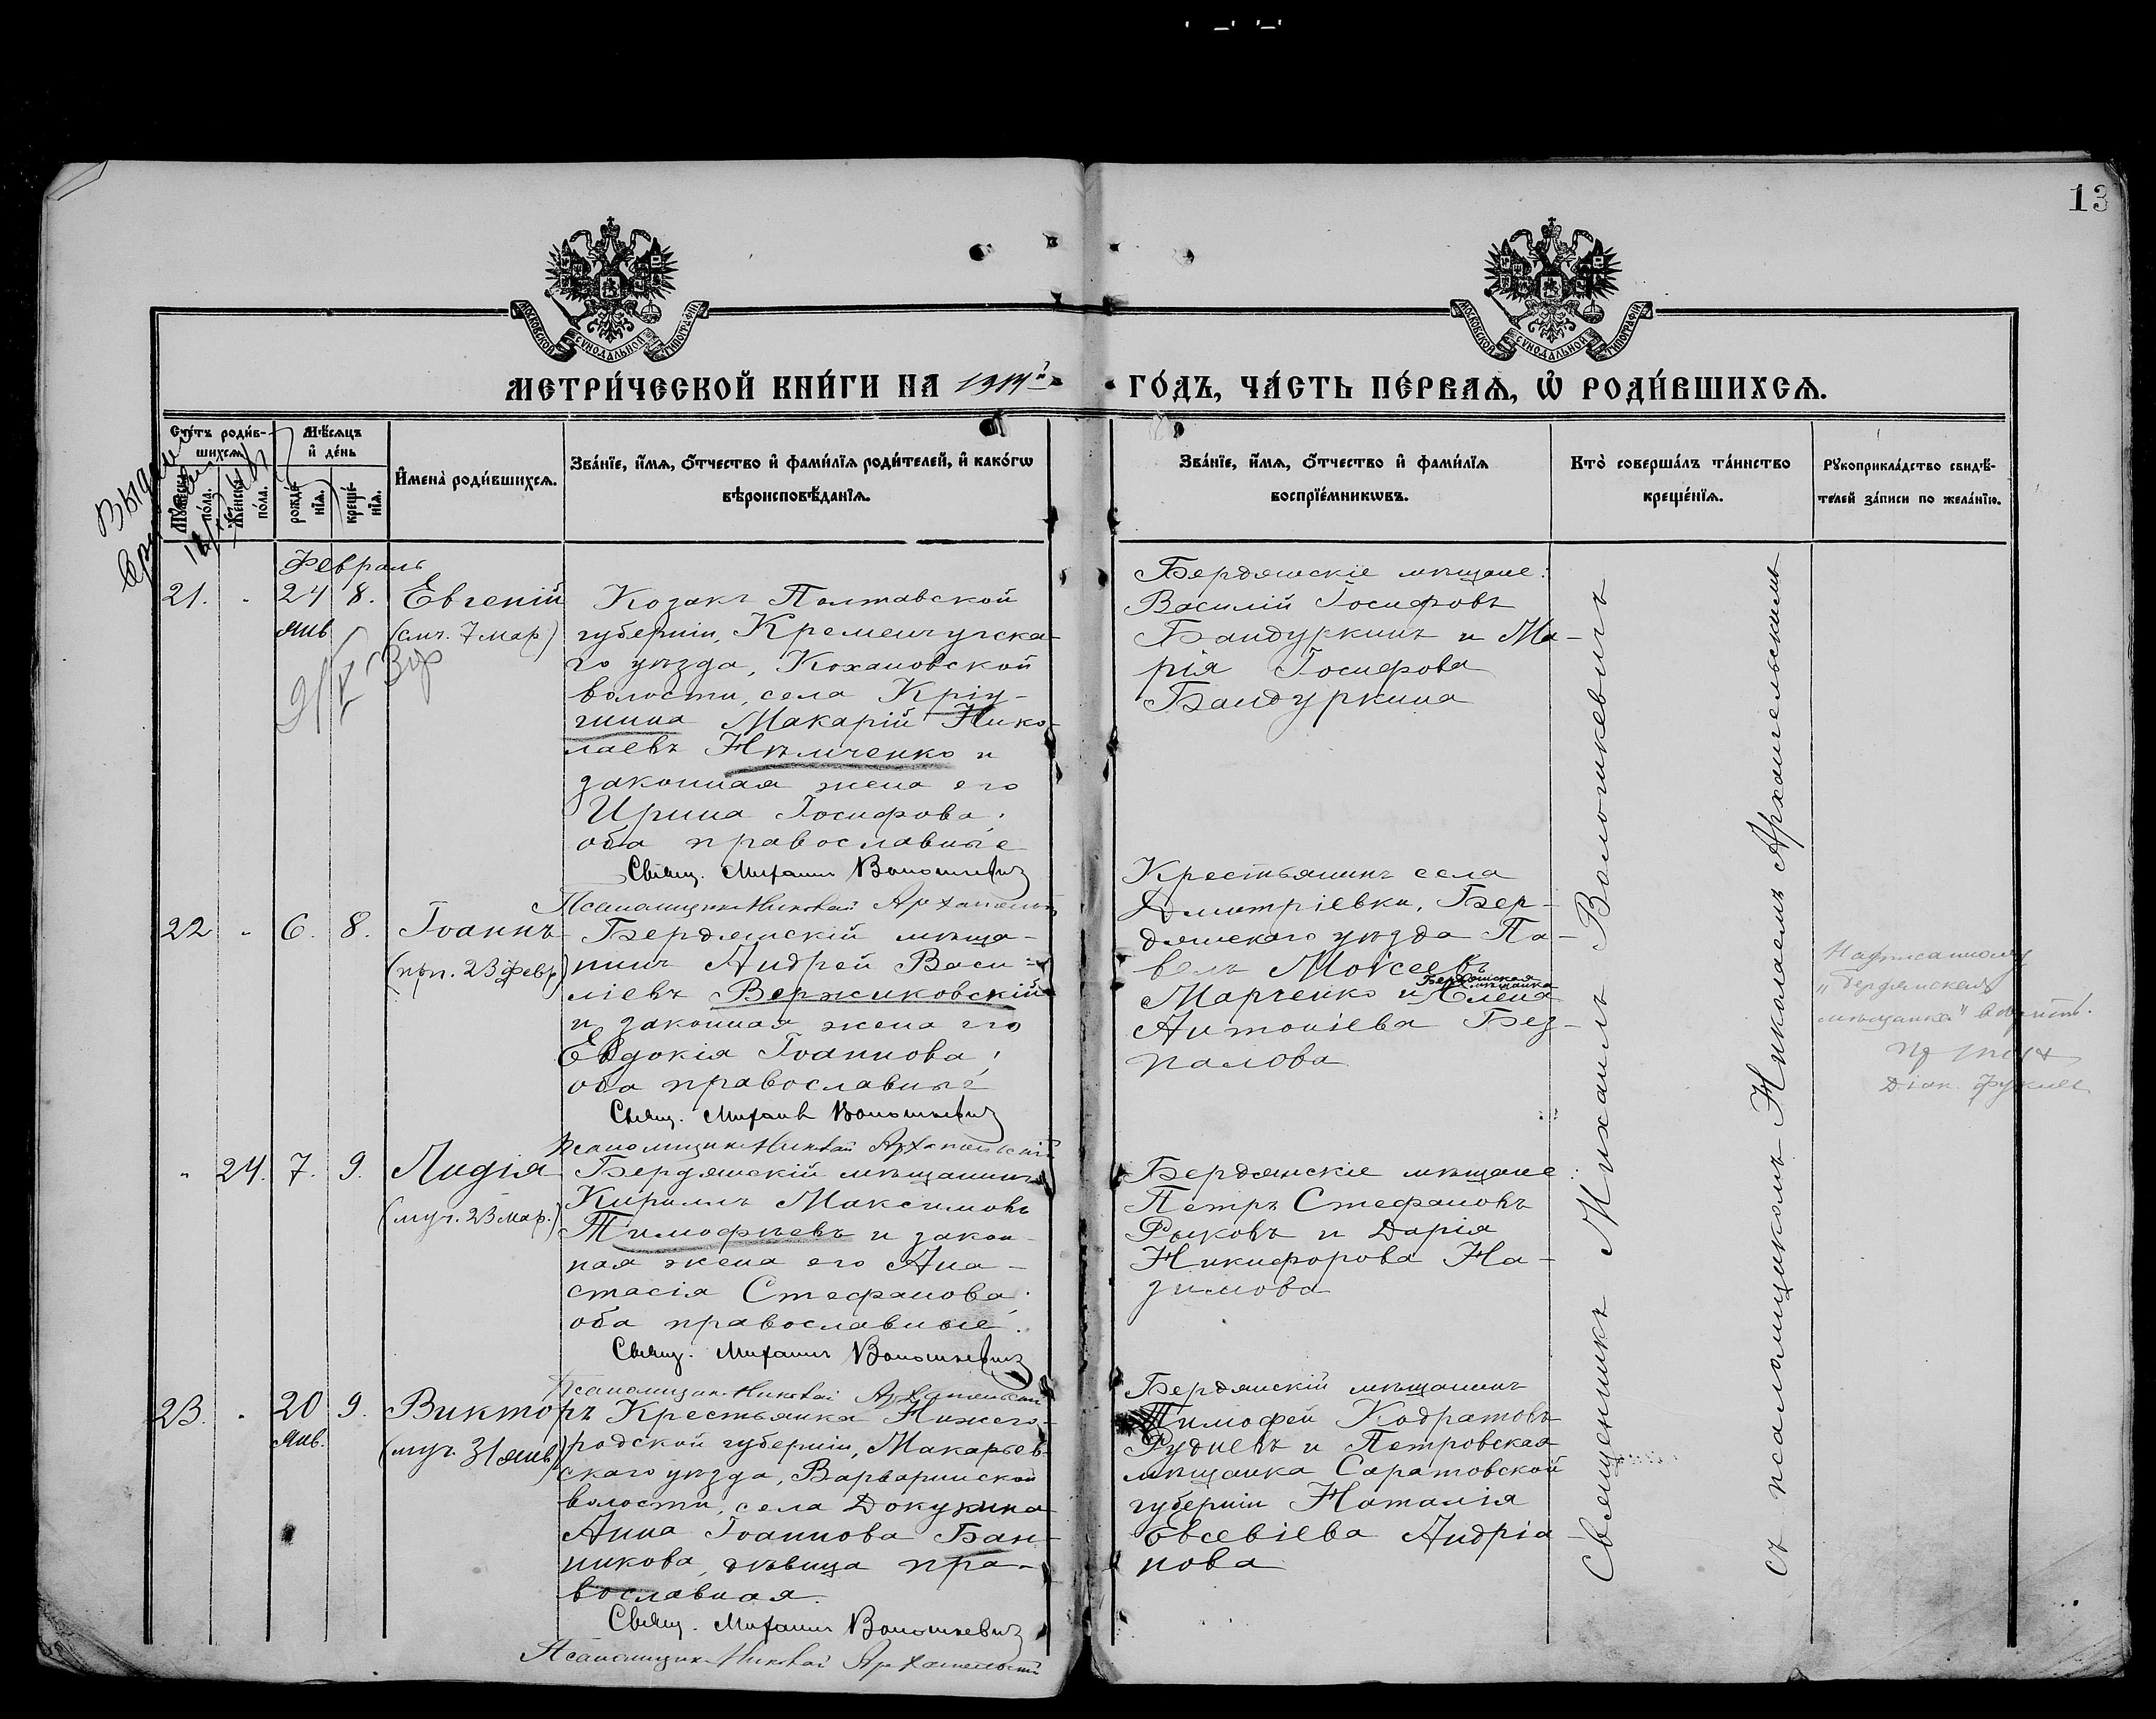 13
МОСКОВСКОЙ СѴНОДАЛЬНОЙ ТИПОГРАФІИ
МОСКОВСКОЙ СѴНОДАЛЬНОЙ ТИПОГРАФІИ
МЕТРИ́ЧЕСКОЙ КНИ́ГИ НА
ГО́ДЪ, ЧА́СТЬ ПЕ́РВАѦ, Ѡ҆ РОДИ́ВШИХСѦ.
Сче́тъ роди́в-
шихсѧ.
Мꙋ́жеска
по́ла.
Же́нска
по́ла.
Мѣ́сѧцъ
и҆ де́нь
рожде́-
нїѧ.
креще́-
нїѧ.
И҆мена̀ роди́вшихсѧ.
Зва́нїе, и҆́мѧ, ѻ҆́тчество и҆ фами́лїѧ роди́телей, и҆ како́гѡ
вѣроисповѣ́данїѧ.
Зва́нїе, и҆́мѧ, ѻ҆́тчество и҆ фами́лїѧ
воспрїе́мникѡвъ.
Кто̀ соверша́лъ та́инство
креще́нїѧ.
Рꙋкоприкла́дство свидѣ́-
телей за́писи по жела́нїю.
Февраль
21. " 24 8. Евгеній
янв
(смч. 7 мар)
Козакъ Полтавской
губерніи, Кременчугска-
го уѣзда, Кохановской
волости, села Кріу-
шина Макарій Нико-
лаевъ Нѣмченко и
законная жена его
Ирина Іосифова;
оба православные
Свящ. Михаилъ Волошкевич
Псаломщикъ Николай Архангельскій
Бердянскіе мѣщане:
Василій Іосифовъ
Бандуркинъ и Ма-
рія Іосифова
Бандуркина
22 " 6. 8. Іоаннъ
(прп. 23 февр)
Бердянскій мѣща-
нинъ Андрей Васи-
ліевъ Вержиковскій
и законная жена его
Евдокія Іоаннова;
оба православные
Свящ. Михаил Волошкевич
Псаломщикъ Николай Архангельскій
Крестьянинъ села
Дмитріевки, Бер-
дянскаго уѣзда Па-
велъ Моѵсеевъ
Бердянская
мѣщанка
Марченко и Елена
Антоніева Без-
палова
Надписанному
"Бердянская
мѣщанка" вѣрить.
" 24. 7. 9. Лидія
(муч. 23 мар.)
Бердянскій мѣщанинъ
Кириллъ Максимовъ
Тимофеевъ и закон-
ная жена его Ана-
стасія Стефанова;
оба православные.
Свящ. Михаилъ Волошкевич
Псаломщикъ Николай Архангельскій
Бердянскіе мѣщане:
Петръ Стефановъ
Рыковъ и Дарія
Никифорова На-
зимова
23. " 20 9. Викторъ
янв.
(муч. 31 янв)
Крестьянка Нижего-
родской губерніи, Макарьев-
скаго уѣзда, Варваринской
волости, села Докукина
Анна Іоаннова Бан-
никова, дѣвица пра-
вославная.
Свящ. Михаилъ Волошкевич
Псаломщикъ Николай Архангельскій
Бердянскій мѣщанинъ
Тимофей Кодратовъ
Рудневъ и Петровская
мѣщанка Саратовской
губерніи Наталія
Евсевіева Андріа-
нова
Священникъ Михаилъ Волошкевичъ
съ псаломщикомъ Николаемъ Архангельскимъ